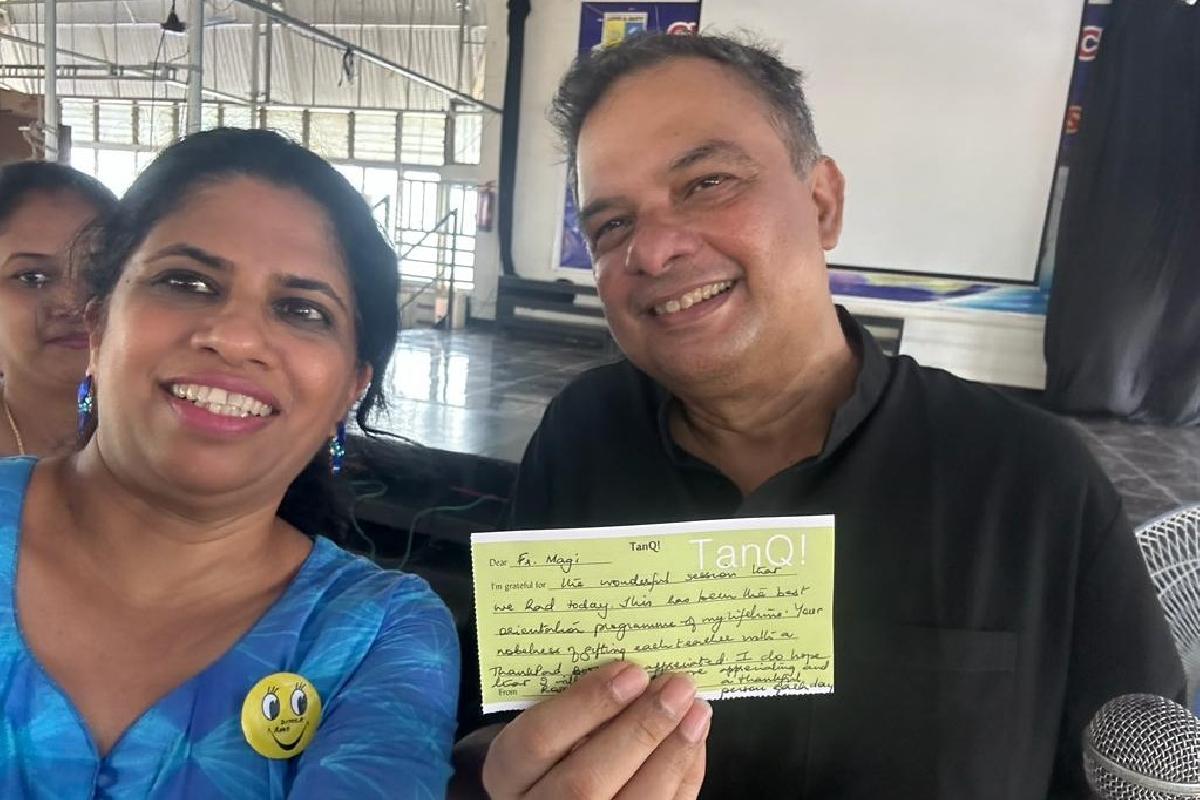 TanQ!
TanQ!
Dear Fr. Magi
I'm grateful for the wonderful session that
we had today. This has been the best
orientation programme of my lifetime. Your
nobelness of gifting each teacher with a
Thankpad appreciated. I do hope
that I appreciating and
a thankful
From person each day